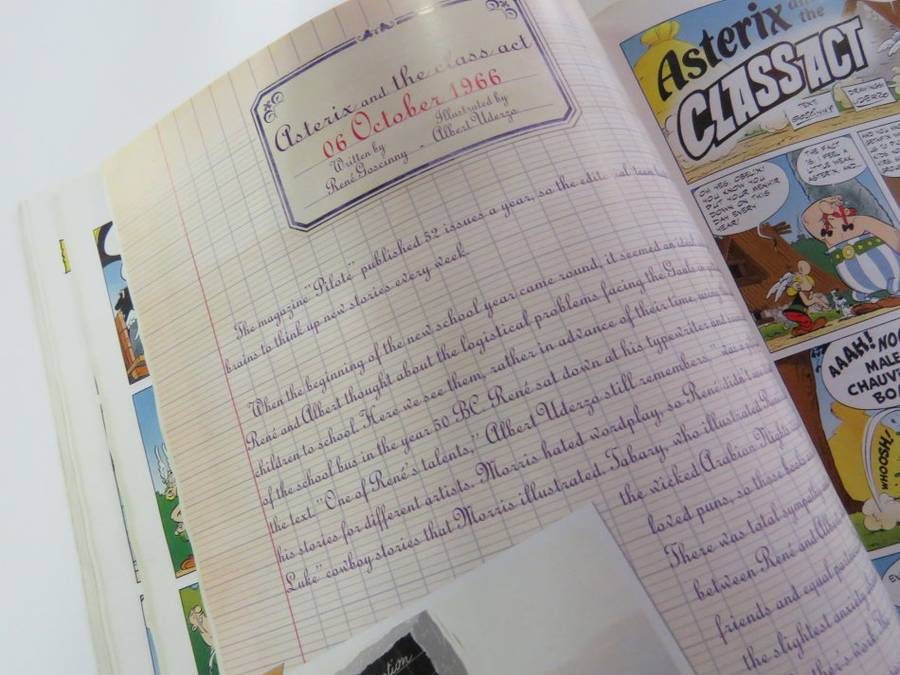 Asterix and the class act
06 October 1966
Written by
René Goscinny - Illustrated by
Albert Uderzo
The magazine "Pilote" published 52 issues a year, so the
brains to think up new stories every week.
When the beginning of the new school year came round, it seemed an
René and Albert thought about the logistical problems facing the Gauls
children to school. Here we see them, rather in advance of their time,
of the school bus in the year 50 BC. René sat down at his typewriter and
the text. "One of René's talents," Albert Uderzo still remembers, "was
his stories for different artists. Morris hated wordplay, so René didn't
Luke" cowboy stories that Morris illustrated. Tabary, who illustrated
the wicked Arabian Nights
loved puns, so those books
There was total sympathy
between René and Albert
friends and equal
the slightest anxiety
Asterix and the
CLASS ACT
TEXT:
GOSCINNY
DRAWINGS:
UDERZO
OH YES, OBELIX!
YOU KNOW YOU
PUT YOUR MENHIR
DOWN ON THIS
DAY EVERY
YEAR!
THE FACT
IS I FEEL A
LITTLE WEAK,
ASTERIX, AND...
AAAH!
WHOOSH!